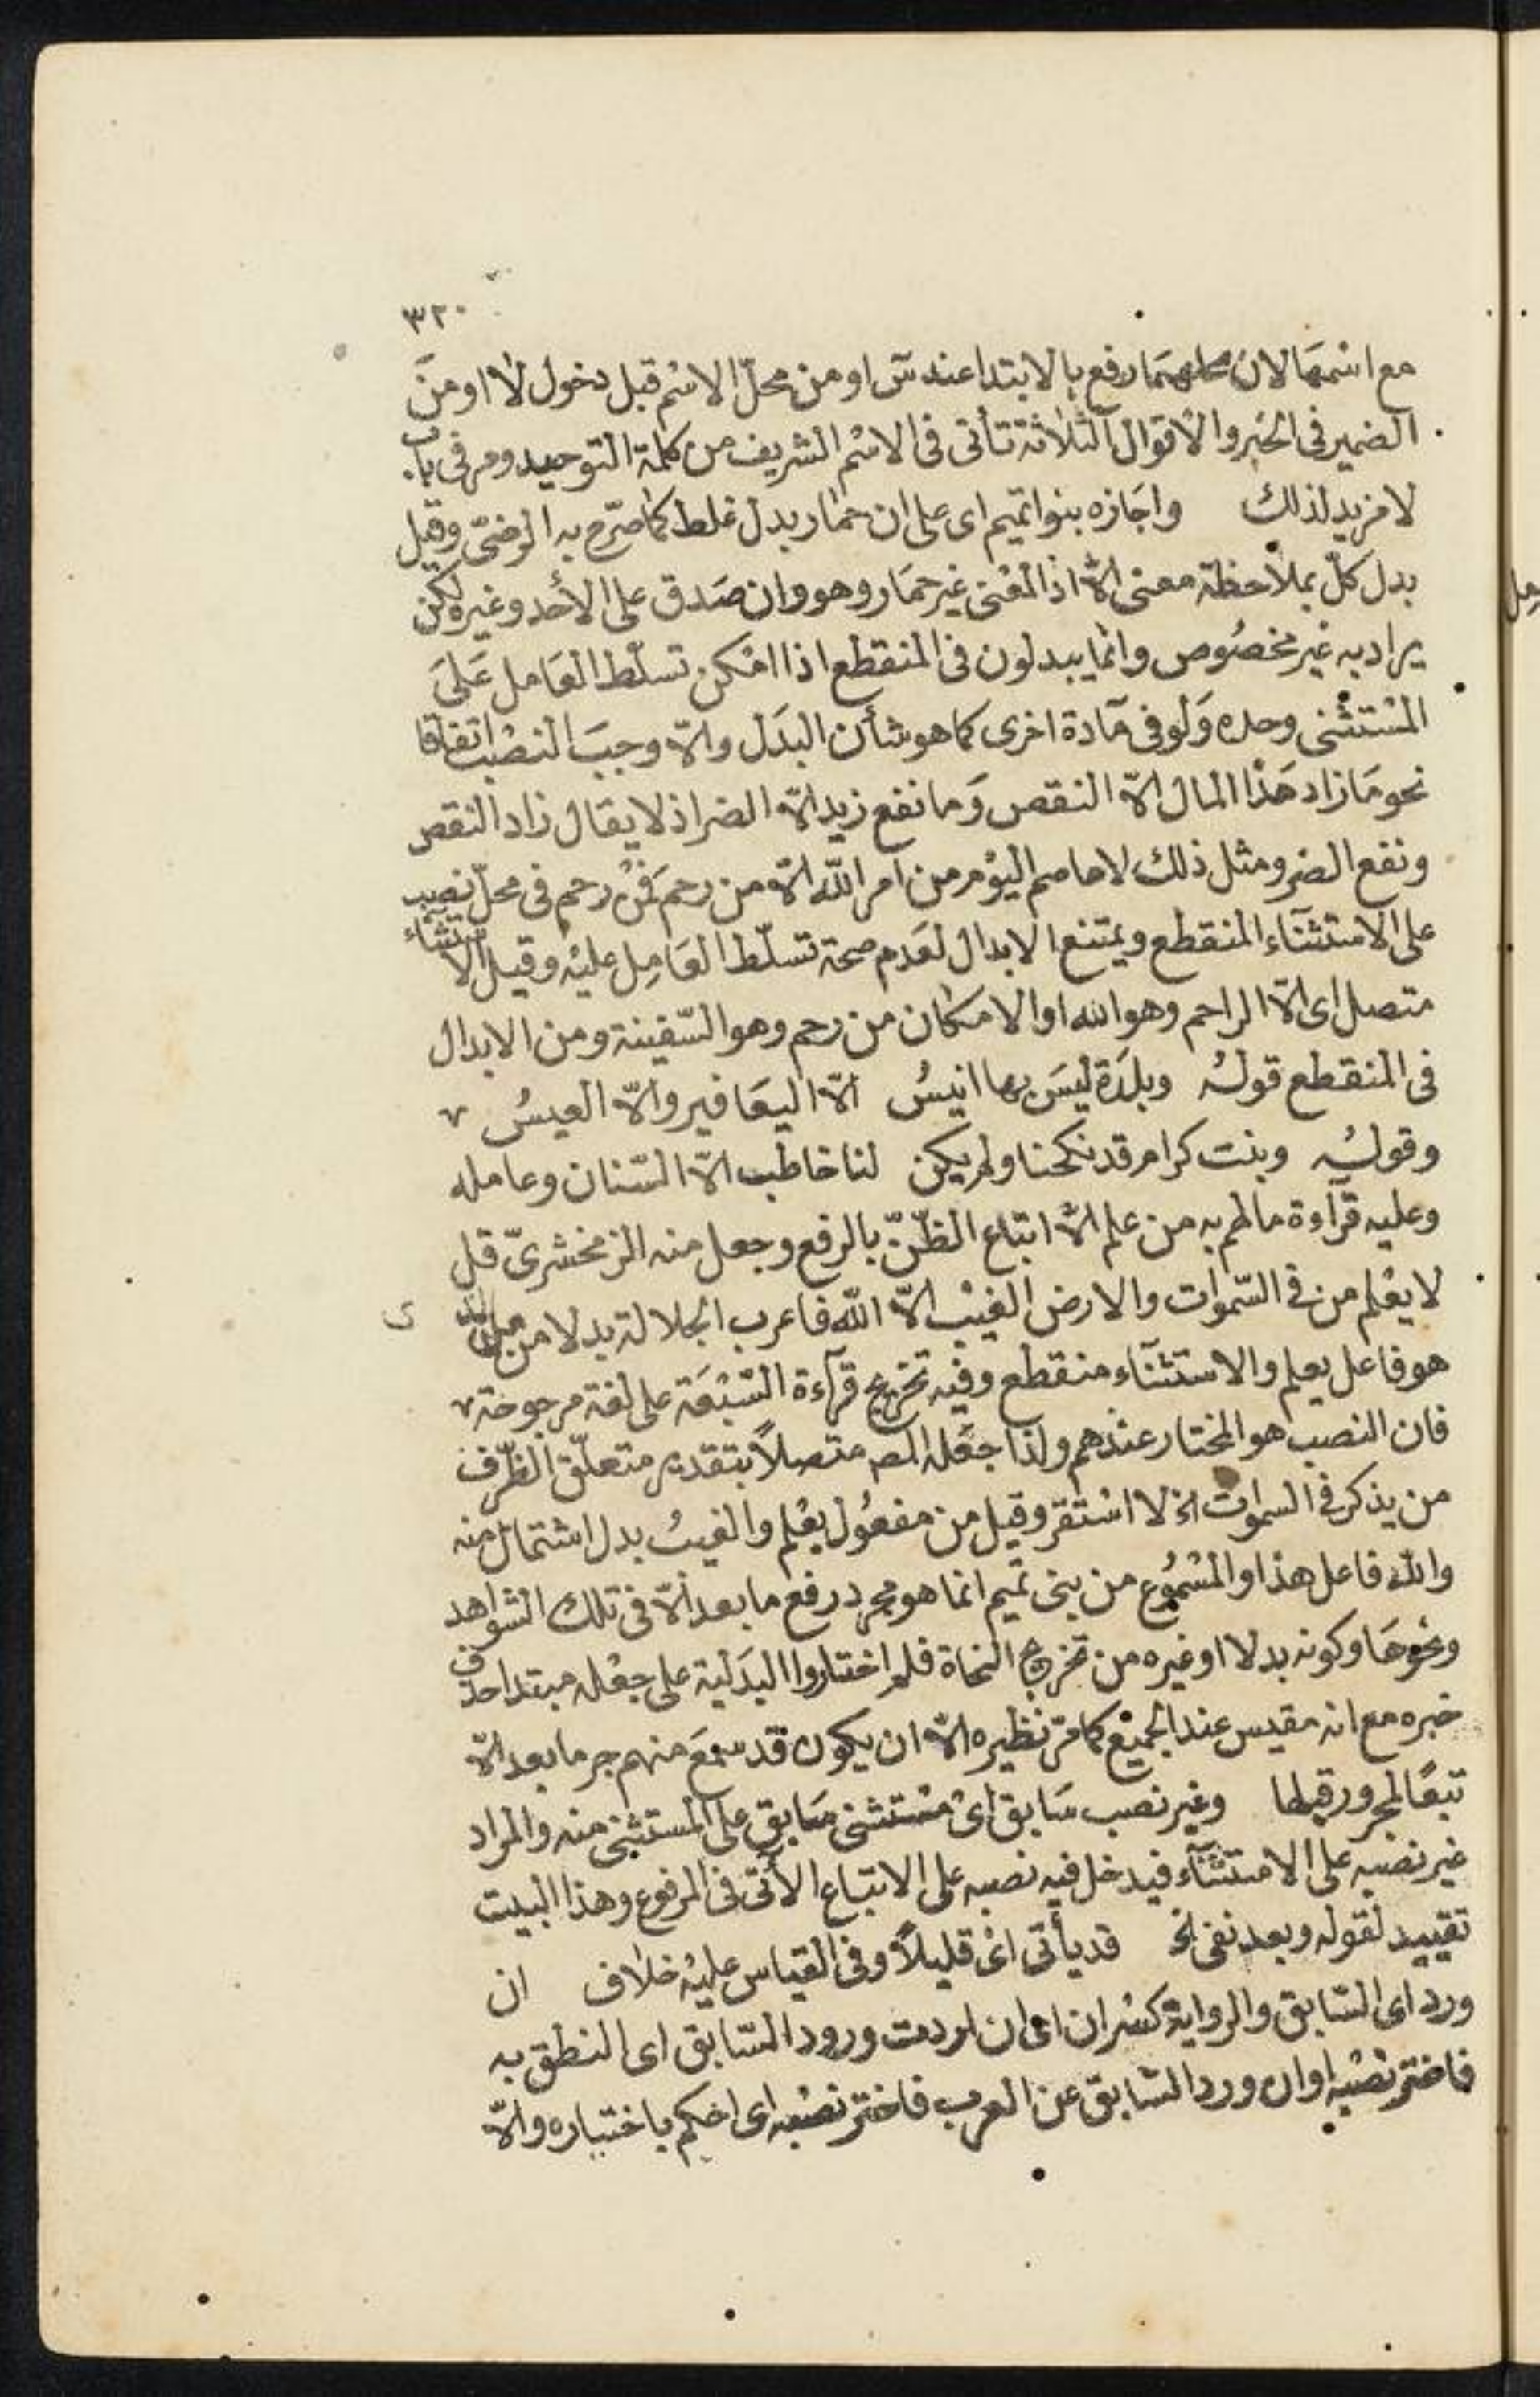 ٣٢٠
مع اسمها لان محلهما رفع بالابتدا عند س او من محلّ الاسم قبل دخول لا او من
الضمير فى الخبر والاقوال الثلاثة تأتى فى الاسم الشريف من كلمة التوحيد ومر فى باب
لا مزيد لذلك واجازه بنوا تميم اى على ان حمار بدل غلط كما صرّح به الرضىّ وقيل
بدل كلّ بملاحظة معنى الاّ اذ المعنى غير حمار وهو وان صدق على الأحد وغيره لكن
يراد به غير مخصوص وانما يبدلون فى المنقطع اذا امكن تسلّط العامل على
المستثنى وحده ولو فى مادة اخرى كما هو شأن البدل والاّ وجب النصب اتفاقا
نحو ما زاد هذا المال الاّ النقص وما نفع زيد الاّ الضر اذ لا يقال زاد النقص
ونفع الضر ومثل ذلك لا عاصم اليوم من امر اللّه الاّ من رحم فمن رحم فى محلّ نصب
على الاستثناء المنقطع ويمتنع الابدال لعدم صحة تسلّط العامل عليه وقيل الاستثناء
متصل اى الاّ الراحم وهو الله او الا مكان من رحم وهو السّفينة ومن الابدال
فى المنقطع قوله وبلدة ليس بها انيسُ الاّ اليعافير والاّ العيسُ
وقوله وبنت كرام قد نكحنا ولم يكن لنا خاطب الاّ السّنان وعامله
وعليه قرآءة ما لهم به من علم الاّ اتباع الظّنّ بالرفع وجعل منه الزمخشرىّ قل
لا يعلم من فى السّموات والارض الغيب الاّ اللّه فاعرب الجلالة بدلا من من الذى
هو فاعل يعلم والاستثنآء منقطع وفيه تخريج قرآءة السّبعة على لغة مرجوحة
فان النصب هو المختار عندهم ولذا جعله المص متصلاً بتقدير متعلّق الظّرف
من يذكر فى السموات الخ لا استقر وقيل من مفعول يعلم والغيبُ بدل اشتمال منه
واللّه فاعل هذا والمسموع من بنى تميم انما هو مجرد رفع ما بعد الاّ فى تلك الشواهد
ونحوها وكونه بدلا او غيره من تخريج النحاة فلم اختاروا البدلية على جعله مبتدا حذف
خبره مع انه مقيس عند الجميع كما مرّ نظيره الاّ ان يكون قد سمع منهم جر ما بعد الاّ
تبعًا لمجرور قبلها وغير نصب سابق اى مستثنى سابق على المستثنى منه والمراد
غير نصبه على الاستثنآء فيدخل فيه نصبه على الاتباع الأتى فى المرفوع وهذا البيت
تقييد لقوله وبعد نفى الخ قد يأتى اى قليلاً وفى القياس عليه خلاف ان
ورد اى السّابق والرواية كسر ان اى ان اردت ورود السّابق اى النطق به
فاختر نصبه او ان ورد السّابق عن العرب فاختر نصبه اى احكم باختياره والاّ